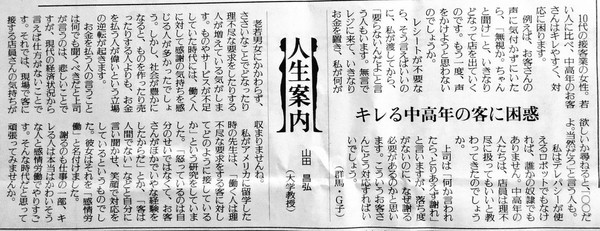 10代の接客業の女性。若
い人に比べ、中高年のお客
さんはキレやすく、対
応に困ります。
例えば、お客さんの
声に気付かずにいた
ら、「無視か。ちゃん
と聞け」と、いきなり
どなって店を出ていく
のです。もう一度、声
をかけようと思わない
のでしょうか。
レシートが不要な
ら、そう言えばいいの
に、私が渡してから
「要らない」と
人もいます。無言で
レジに来て、いきなり
お金を置き、私が何が
欲しいか尋ねると「〇〇だ
よ。当然だろ」と言う人も。
私はテレパシーが使
えるロボットでもなけ
れば、誰の奴隷でも
ありません。中高年の
人たちは、店員は理不
尽に扱ってもいいと教
わってきたのでしょう
か。
上司は「何か言われ
たらとりあえず謝れ」
と言いますが、落ち度
がないのに、なぜ謝る
必要があるのかと思い
ます。こういうお客さ
んにどう対応すればい
いでしょう。
(群馬・G子)
キレる中高年の客に困惑
人生案内
山田 昌弘
(大学教授)
老若男女にかかわらず、
ささいなことでどなったり
理不尽な要求をしたりする
人が増えている気がしま
す。ものやサービスが不足
していた時代には、働く人
に対して感謝の気持ちを感
じる人が多かったでしょ
う。しかし、社会が豊かに
なると、ものを作ったり売
ったりする人よりも、お金
を払う人が偉いという立場
の逆転が起きます。
お金を払う人の言うこと
は何でも聞くべきだと上司
が言うのは、悲しいことで
すが、現代の経済状況から
言えば仕方がないことで
す。それでは、現場で客に
接する店員さんの気持ちが
収まりませんね。
私がアメリカに留学した
時の先生は、「働く人は理
不尽な要求をする客に対し
てどのように接している
か」という研究をしていま
した。「怒っているのは自
分のせいではなくて、お客
さんはかわいそうな経験を
したからだ」とか、「客は
人間でない」などと自分に
言い聞かせ、笑顔で対応を
しているというものでし
た。彼女はそれを「感情労
働」と名付けました。
謝るのも仕事の一部、キ
レる人は本当はかわいそう
な人と感情労働でやりすご
す。そんな時代だと思って
頑張ってみませんか。